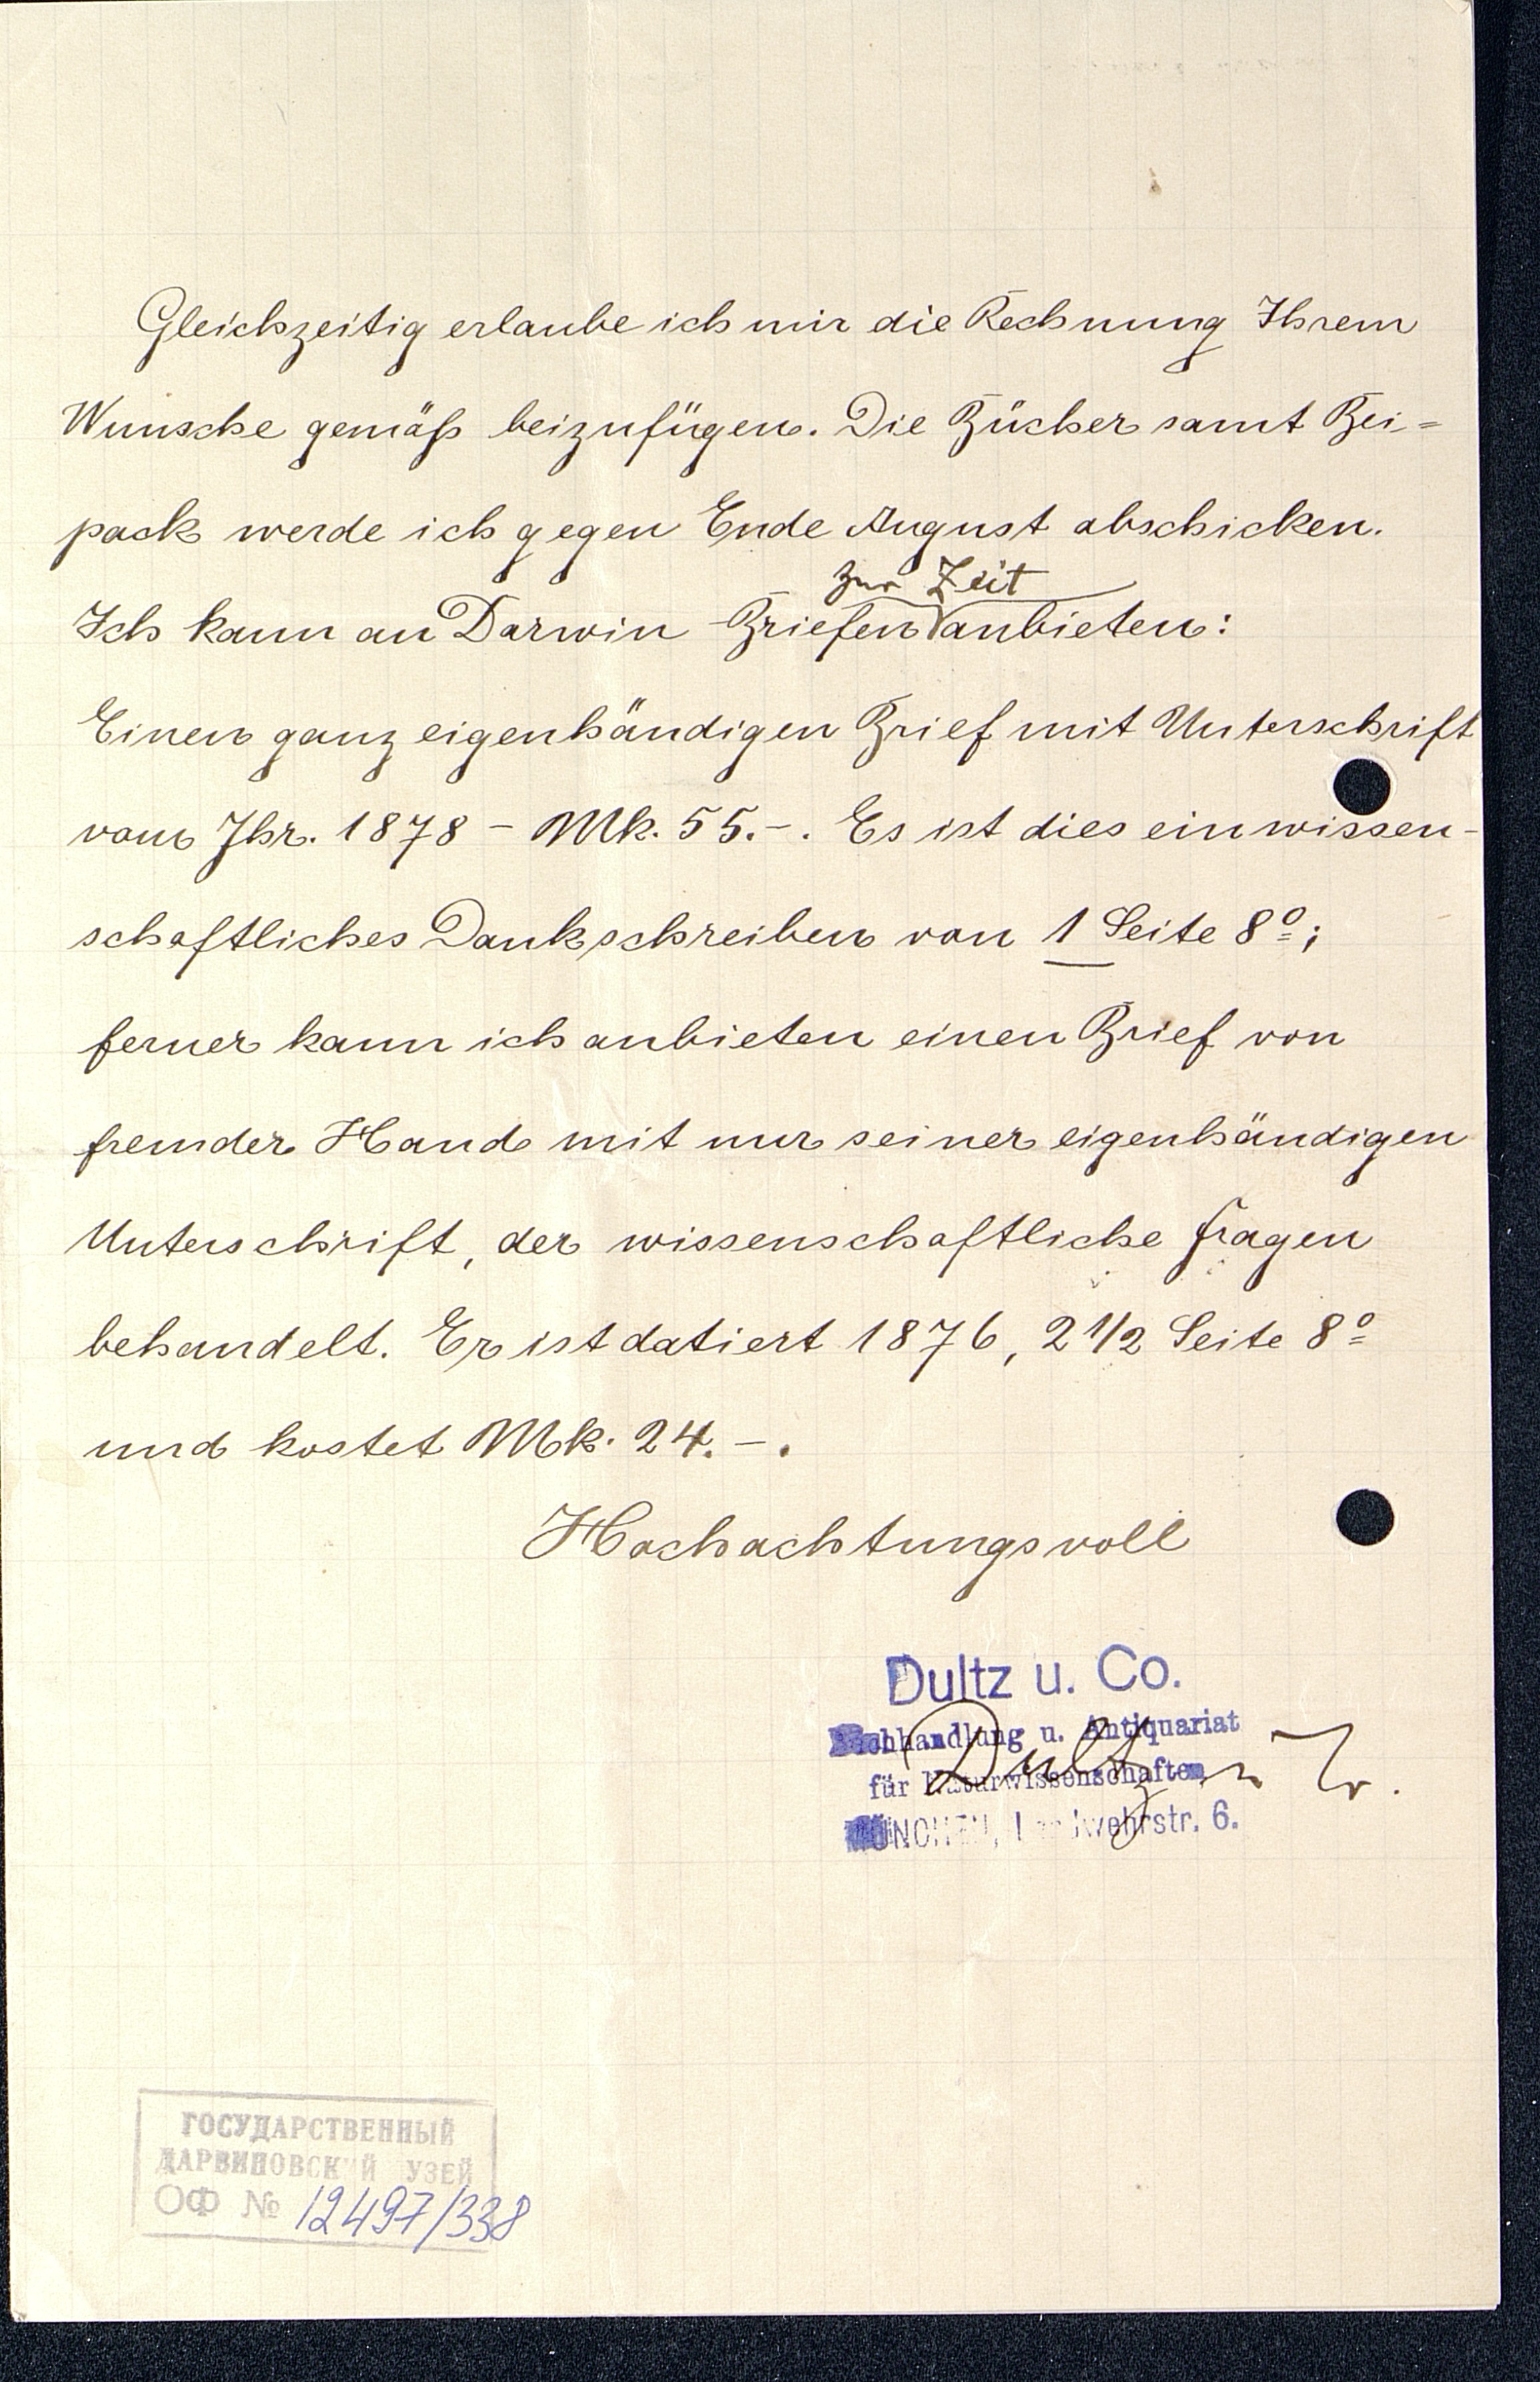 Gleichzeitig erlaube ich mir die Rechnung Ihrem
Wunsche gemäß beizufügen. Die Bücher samt Bei=
pack werde ich gegen Ende August abschicken.
zur Zeit
Ich kann an Darwin-Briefen anbieten:
Einen ganz eigenhändigen Brief mit Unterschrift
vom Jhr. 1878 - Mk. 55.-. Es ist dies ein wissen-
schaftliches Dankschreiben von 1 Seite 8º;
ferner kann ich anbieten einen Brief von
fremder Hand mit nur seiner eigenhändigen
Unterschrift, der wissenschaftliche Fragen
behandelt. Er ist datiert 1876, 2 1/2 Seite 8º
und kostet Mk. 24.-.
Hochachtungsvoll
Dultz u. Co.
Buchhandlung u. Antiquariat
für Naturwissenschaften
MÜNCHEN, Landwehrstr. 6.
Dultz
ГОСУДАРСТВЕННЫЙ
ДАРВИНОВСКИЙ МУЗЕЙ
ОФ № 12497/338